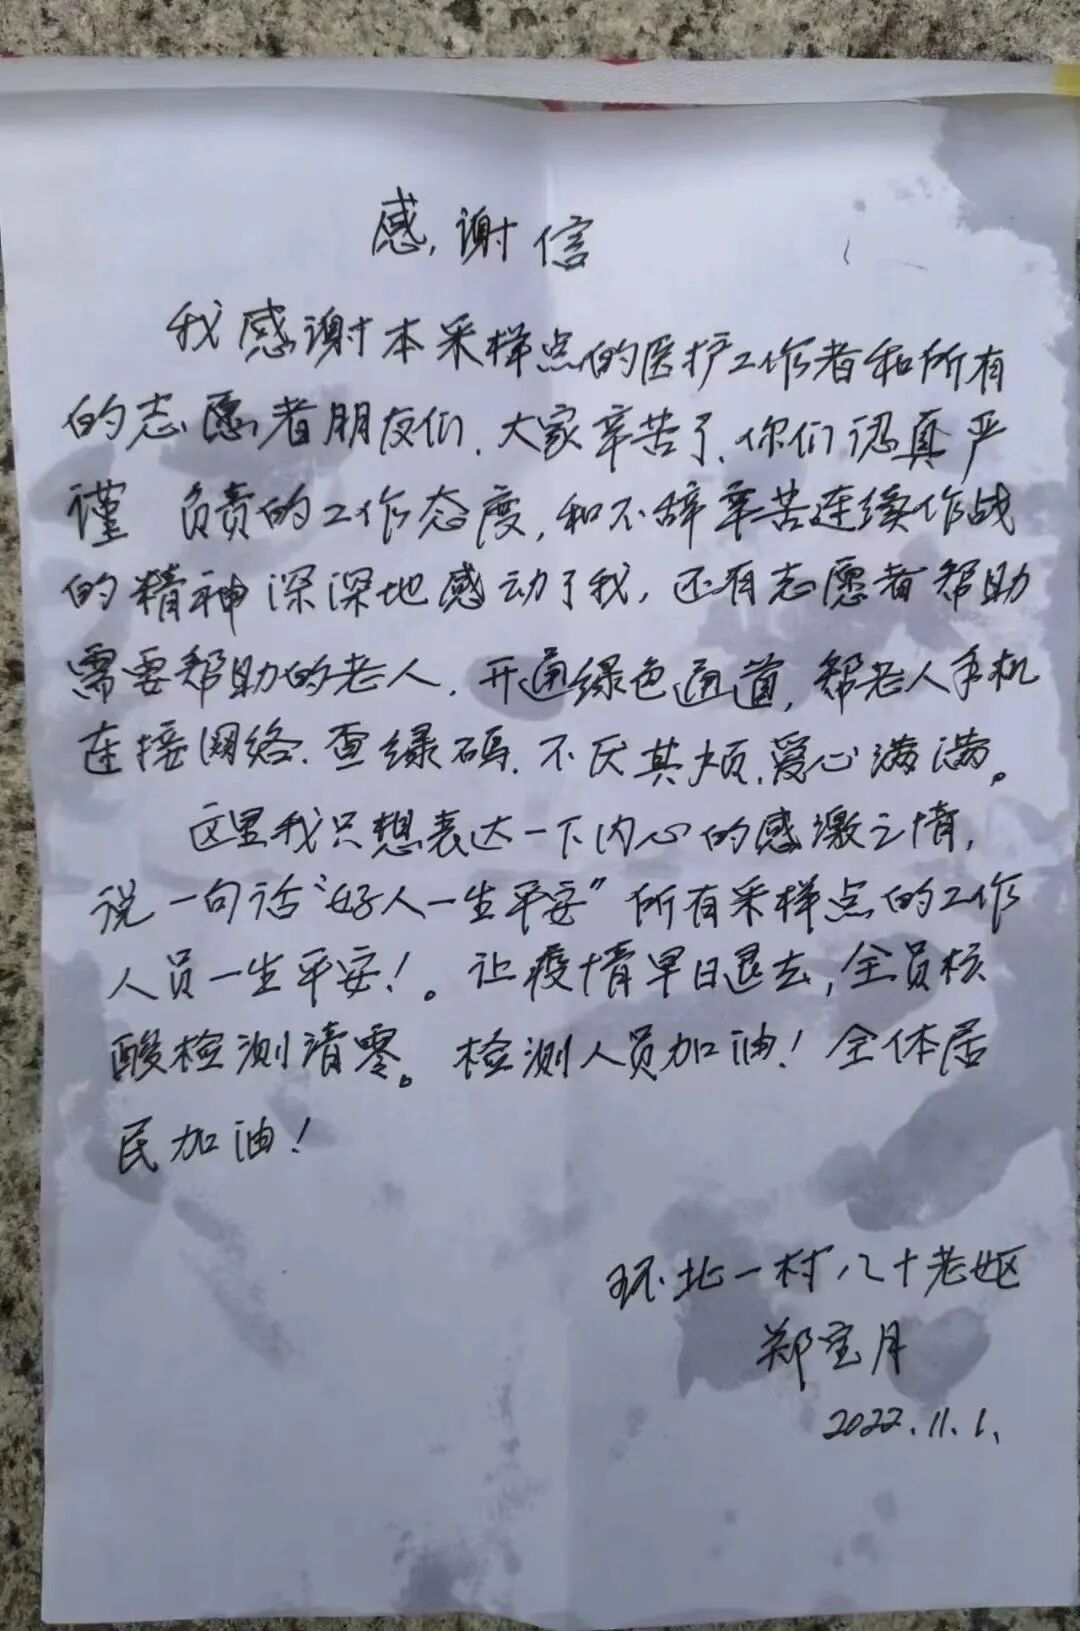 感谢信
我感谢本采样点的医护工作者和所有
的志愿者朋友们.大家辛苦了.你们认真严
谨 负责的工作态度,和不辞辛苦连续作战
的精神深深地感动了我,还有志愿者帮助
需要帮助的老人.开通绿色通道,帮老人手机
连接网络.查绿码.不厌其烦.爱心满满。
这里我只想表达一下内心的感激之情,
说一句话“好人一生平安”所有采样点的工作
人员一生平安!。让疫情早日退去,全员核
酸检测清零。检测人员加油!全体居
民加油!
环北一村八十老妪
郑宝月
2022.11.1.